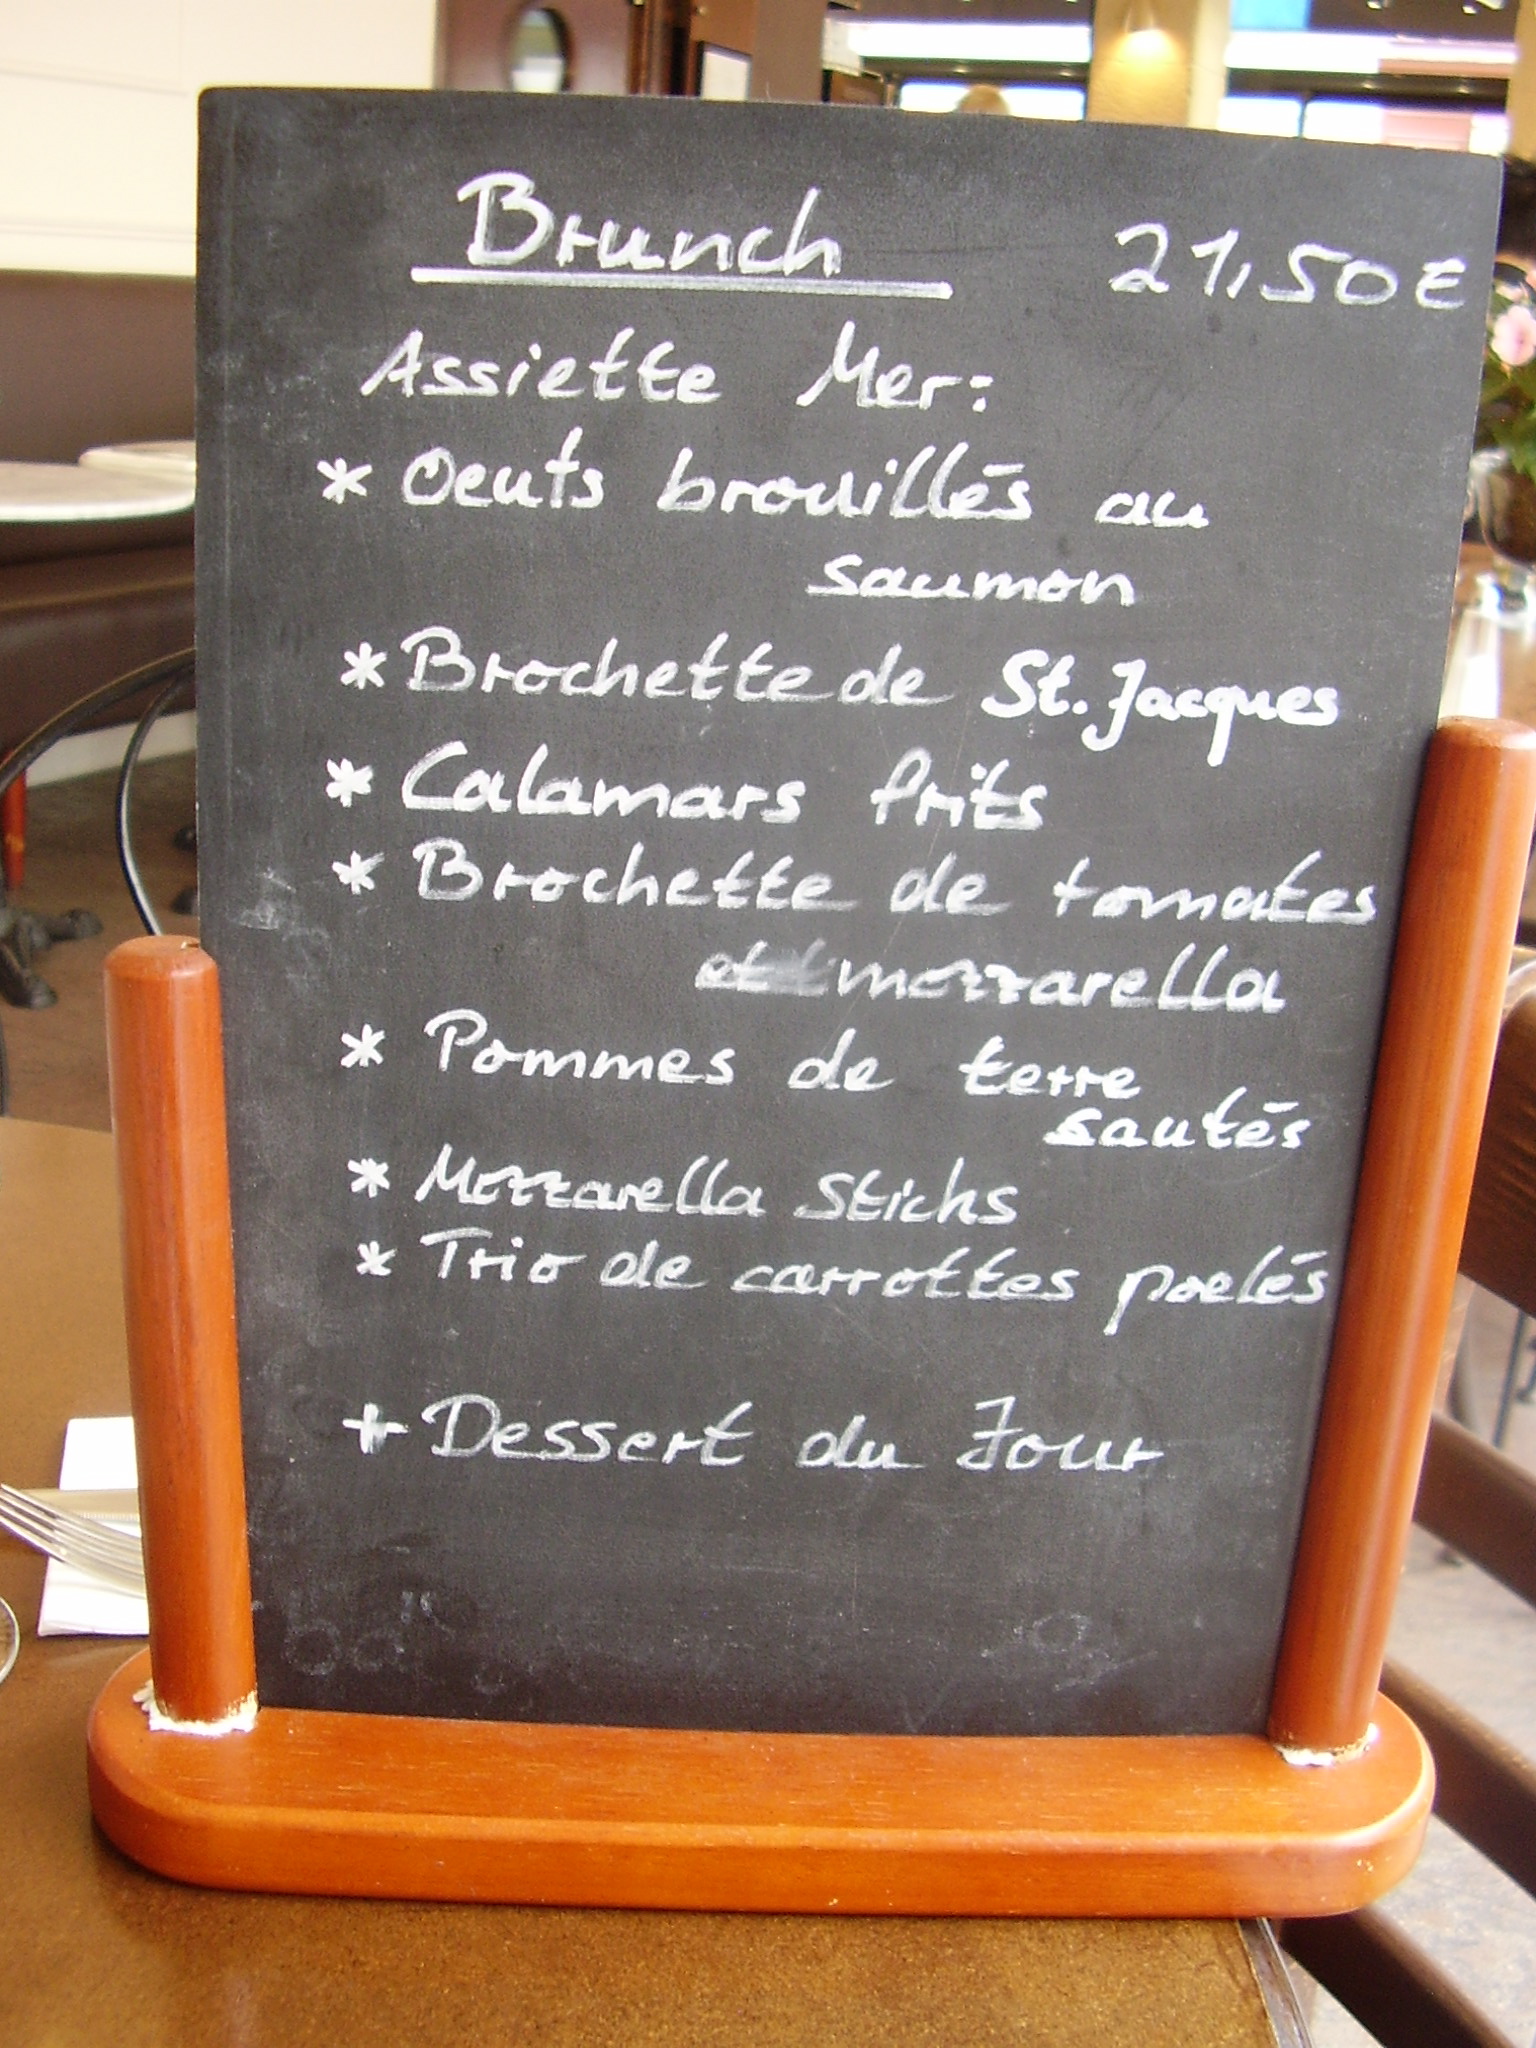 Brunch 21,50€
Assiette Mer:
* Oeufs brouillés au
saumon
* Brochette de St. Jacques
* Calamars frits
* Brochette de tomates
et mozzarella
* Pommes de terre
sautés
* Mozzarella Sticks
* Trio de carrottes poelés
+ Dessert du Jour